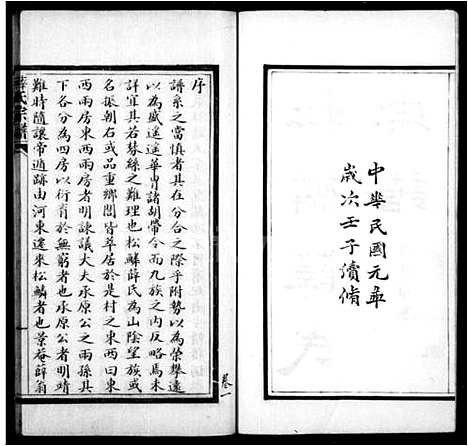 中華民國元年
歲次壬子續脩
序
譜系之當慎者其在分合之際乎附勢以為榮攀遠
以為盛遙遙華胄諸胡帶令而九族之內反略焉未
詳宜其若棼絲之難理也松鱗薛氏為山陰望族或
名振朝右或品重鄉閭皆萃居於是村之東西曰東
西兩房東西兩房者明諫議大夫承原公之兩孫其
下各分為四房以衍育於無窮者也承原公者明靖
難時隨讓帝遁跡由河東遂來松鱗者也景庵薛翁
薛氏宗譜
卷一